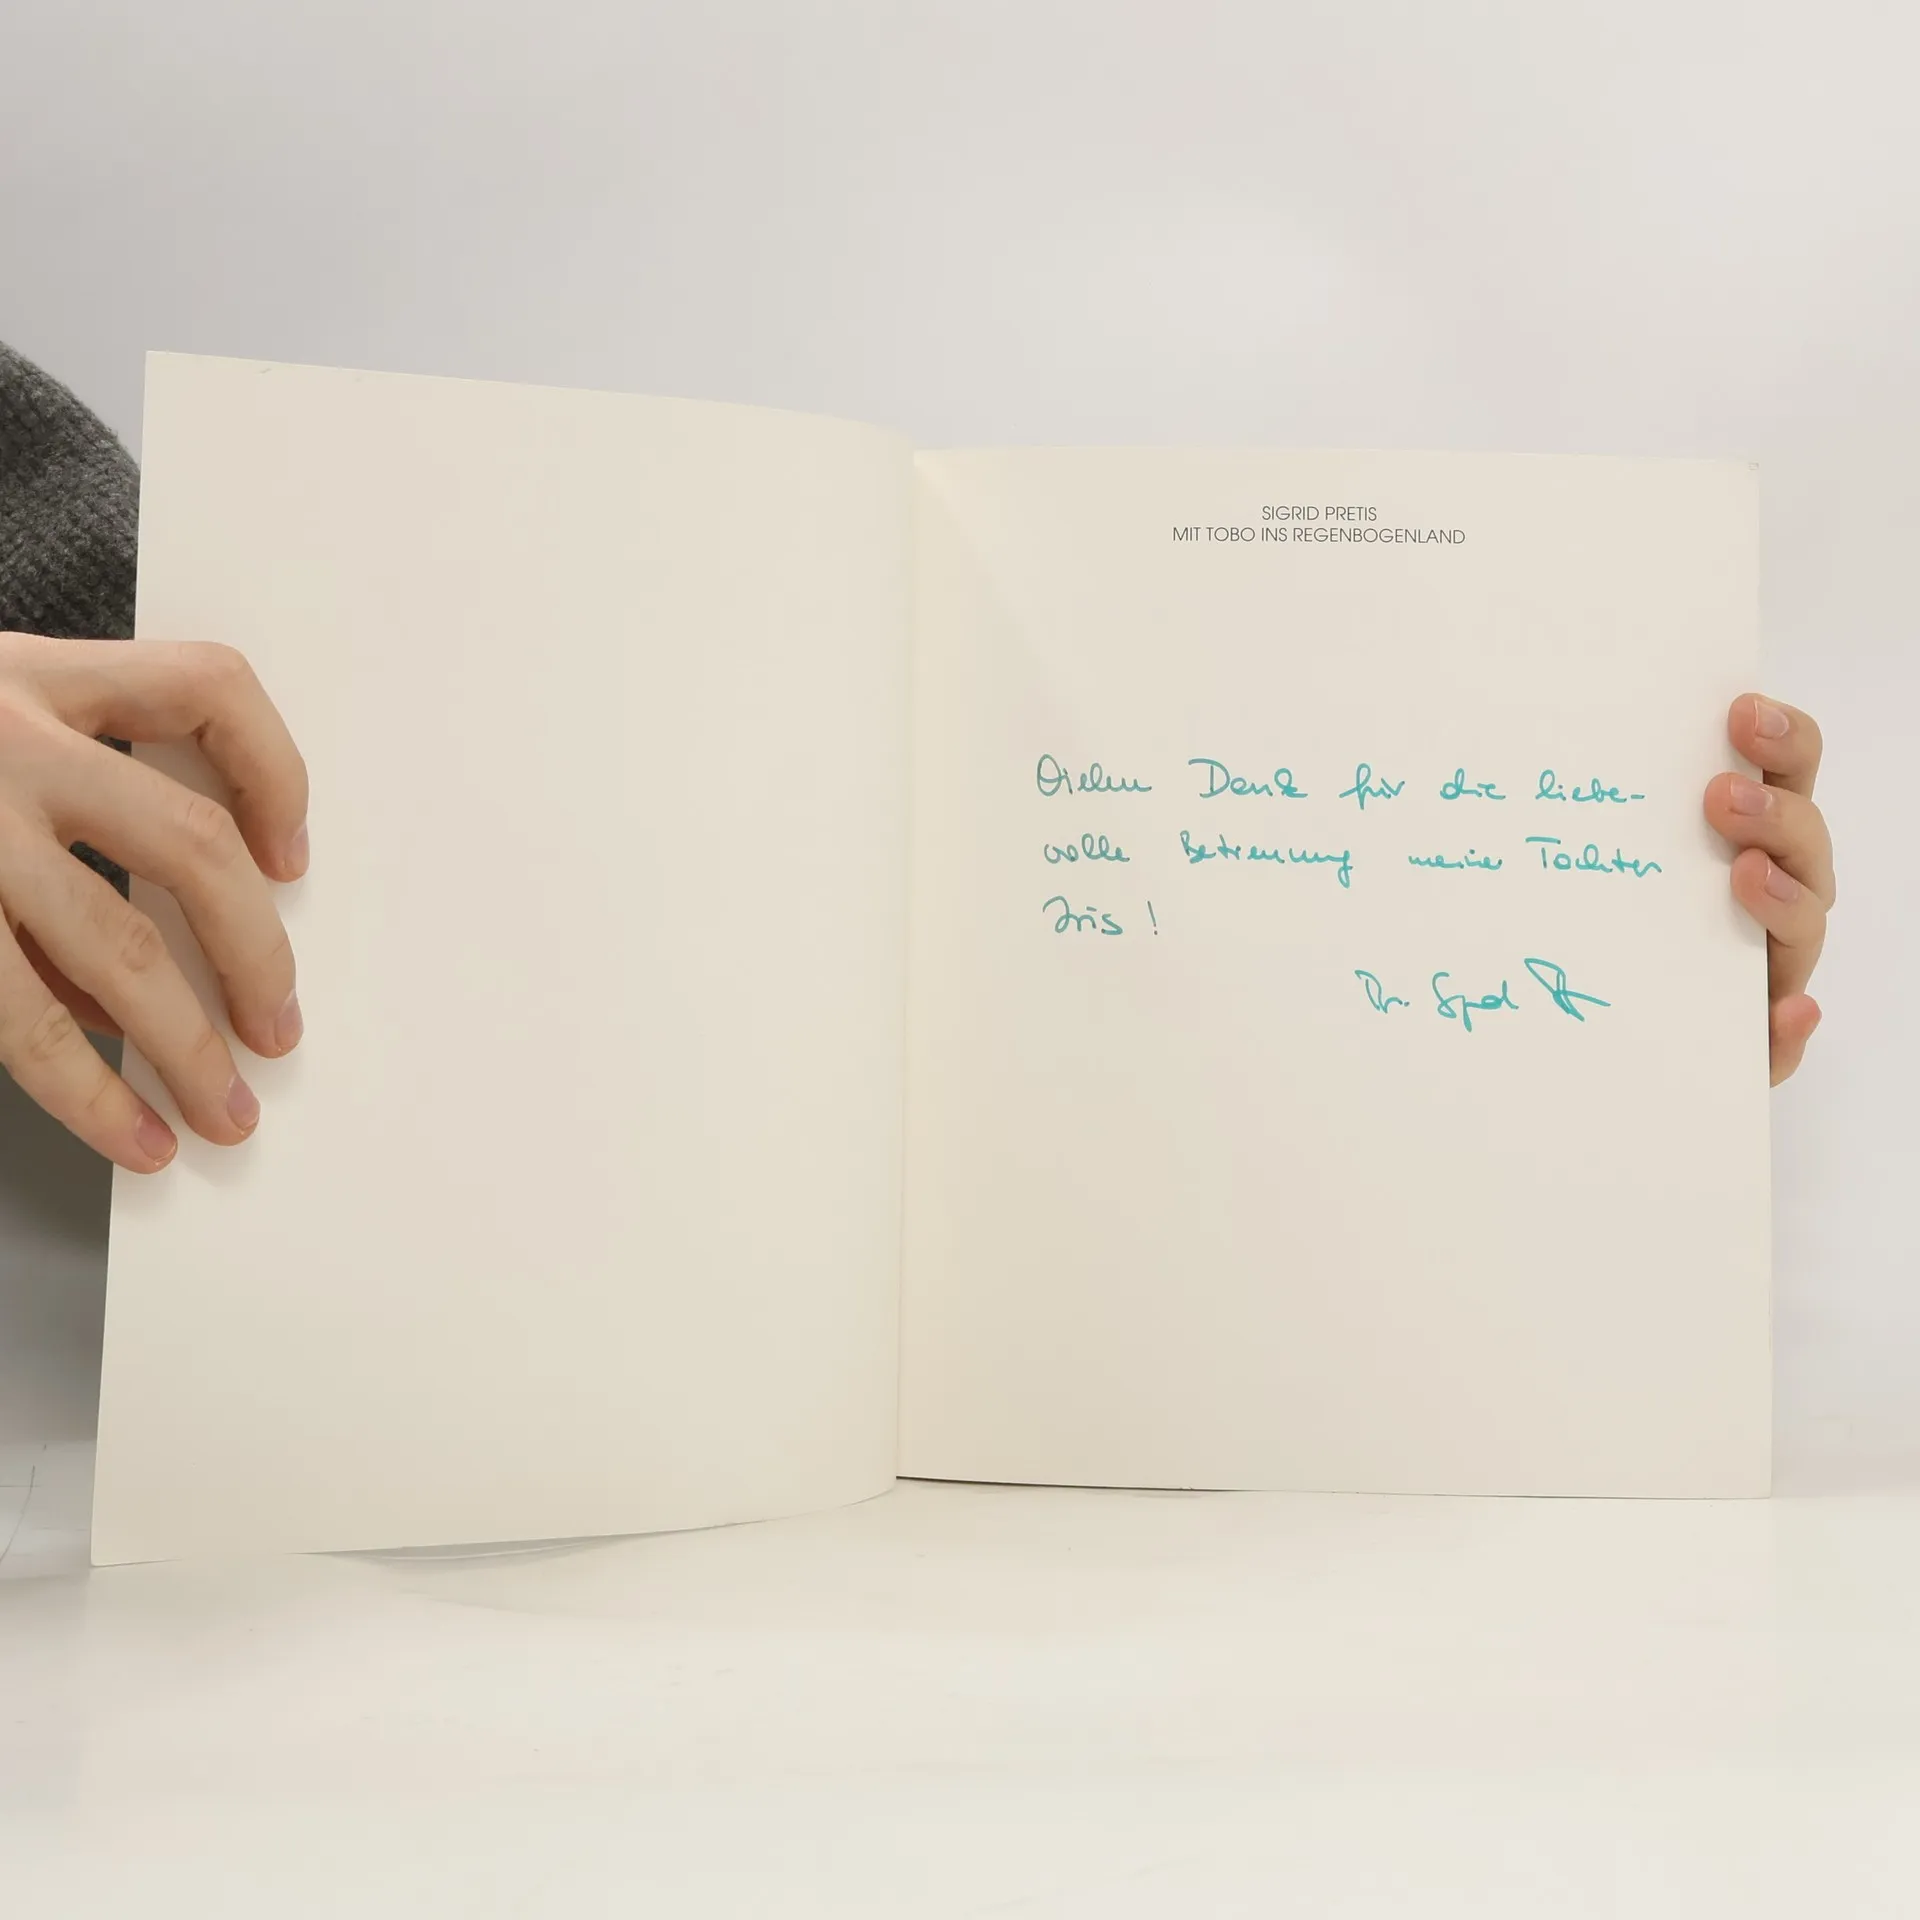 SIGRID PRETIS
MIT TOBO INS REGENBOGENLAND
Vielen Dank für die liebe-
volle Betreuung meiner Tochter
Iris !
Dr.